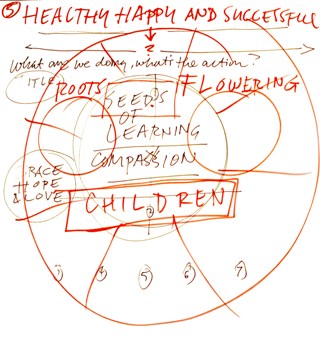 ⑤ HEALTHY HAPPY AND SUCCESSFUL
?
What are we doing, what's the action?
TITLE
ROOTS FLOWERING
SEEDS
OF
LEARNING
COMPASSION
RACE
HOPE
& LOVE
CHILDREN